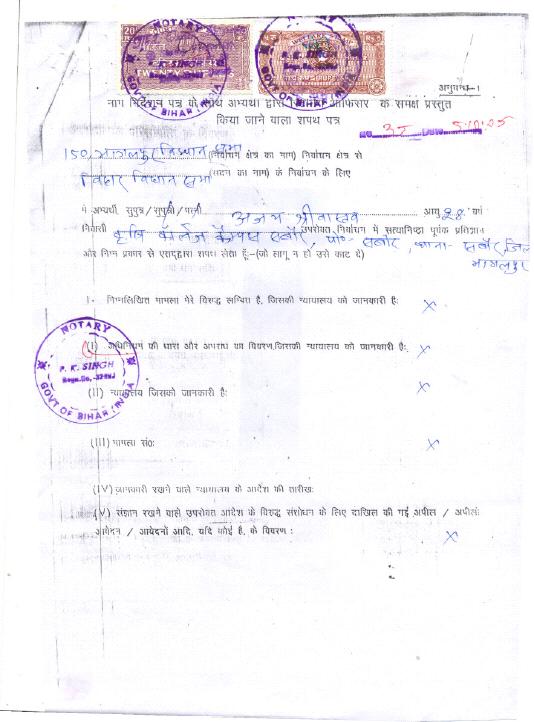 NOTARY
P. K. SINGH
GOVT OF BIHAR INDIA
NOTARY
P. K. SINGH
GOVT OF BIHAR INDIA
20
TWENTY
अनुबन्ध-1
पत्र के साथ अभ्यर्थी द्वारा के समक्ष प्रस्तुत
किया जाने वाला शपथ पत्र
150, भागलपुर विधान सभा (निर्वाचन क्षेत्र का नाम) निर्वाचन क्षेत्र से
बिहार विधान सभा (सदन का नाम) के निर्वाचन के लिए
मैं अभ्यर्थी सुपुत्र/सुपुत्री/पत्नी अजय श्रीवास्तव आयु 28 वर्ष
निवासी कृषि कॉलेज कैम्पस सबौर, पो०- सबौर, थाना- सबौर, जिला भागलपुर उपरोक्त निर्वाचन में सत्यनिष्ठा पूर्वक प्रतिज्ञान
और निम्न प्रकार से एतद्द्वारा शपथ लेता हूँ:-(जो लागू न हो उसे काट दें)
1- निम्नलिखित मामला मेरे विरुद्ध लम्बित है, जिसकी न्यायालय को जानकारी है: X
(I) अधिनियम की धारा और अपराध का विवरण,जिसकी न्यायालय को जानकारी है: X
NOTARY
P. K. SINGH
GOVT OF BIHAR INDIA
(II) न्यायालय जिसको जानकारी है: X
(III) मामला सं०: X
(IV) जानकारी रखने वाले न्यायालय के आदेश की तारीख:
(V) संज्ञान रखने वाले उपरोक्त आदेश के विरुद्ध संशोधन के लिए दाखिल की गई अपील / अपीलें
आवेदन / आवेदनों आदि, यदि कोई है, के विवरण : X